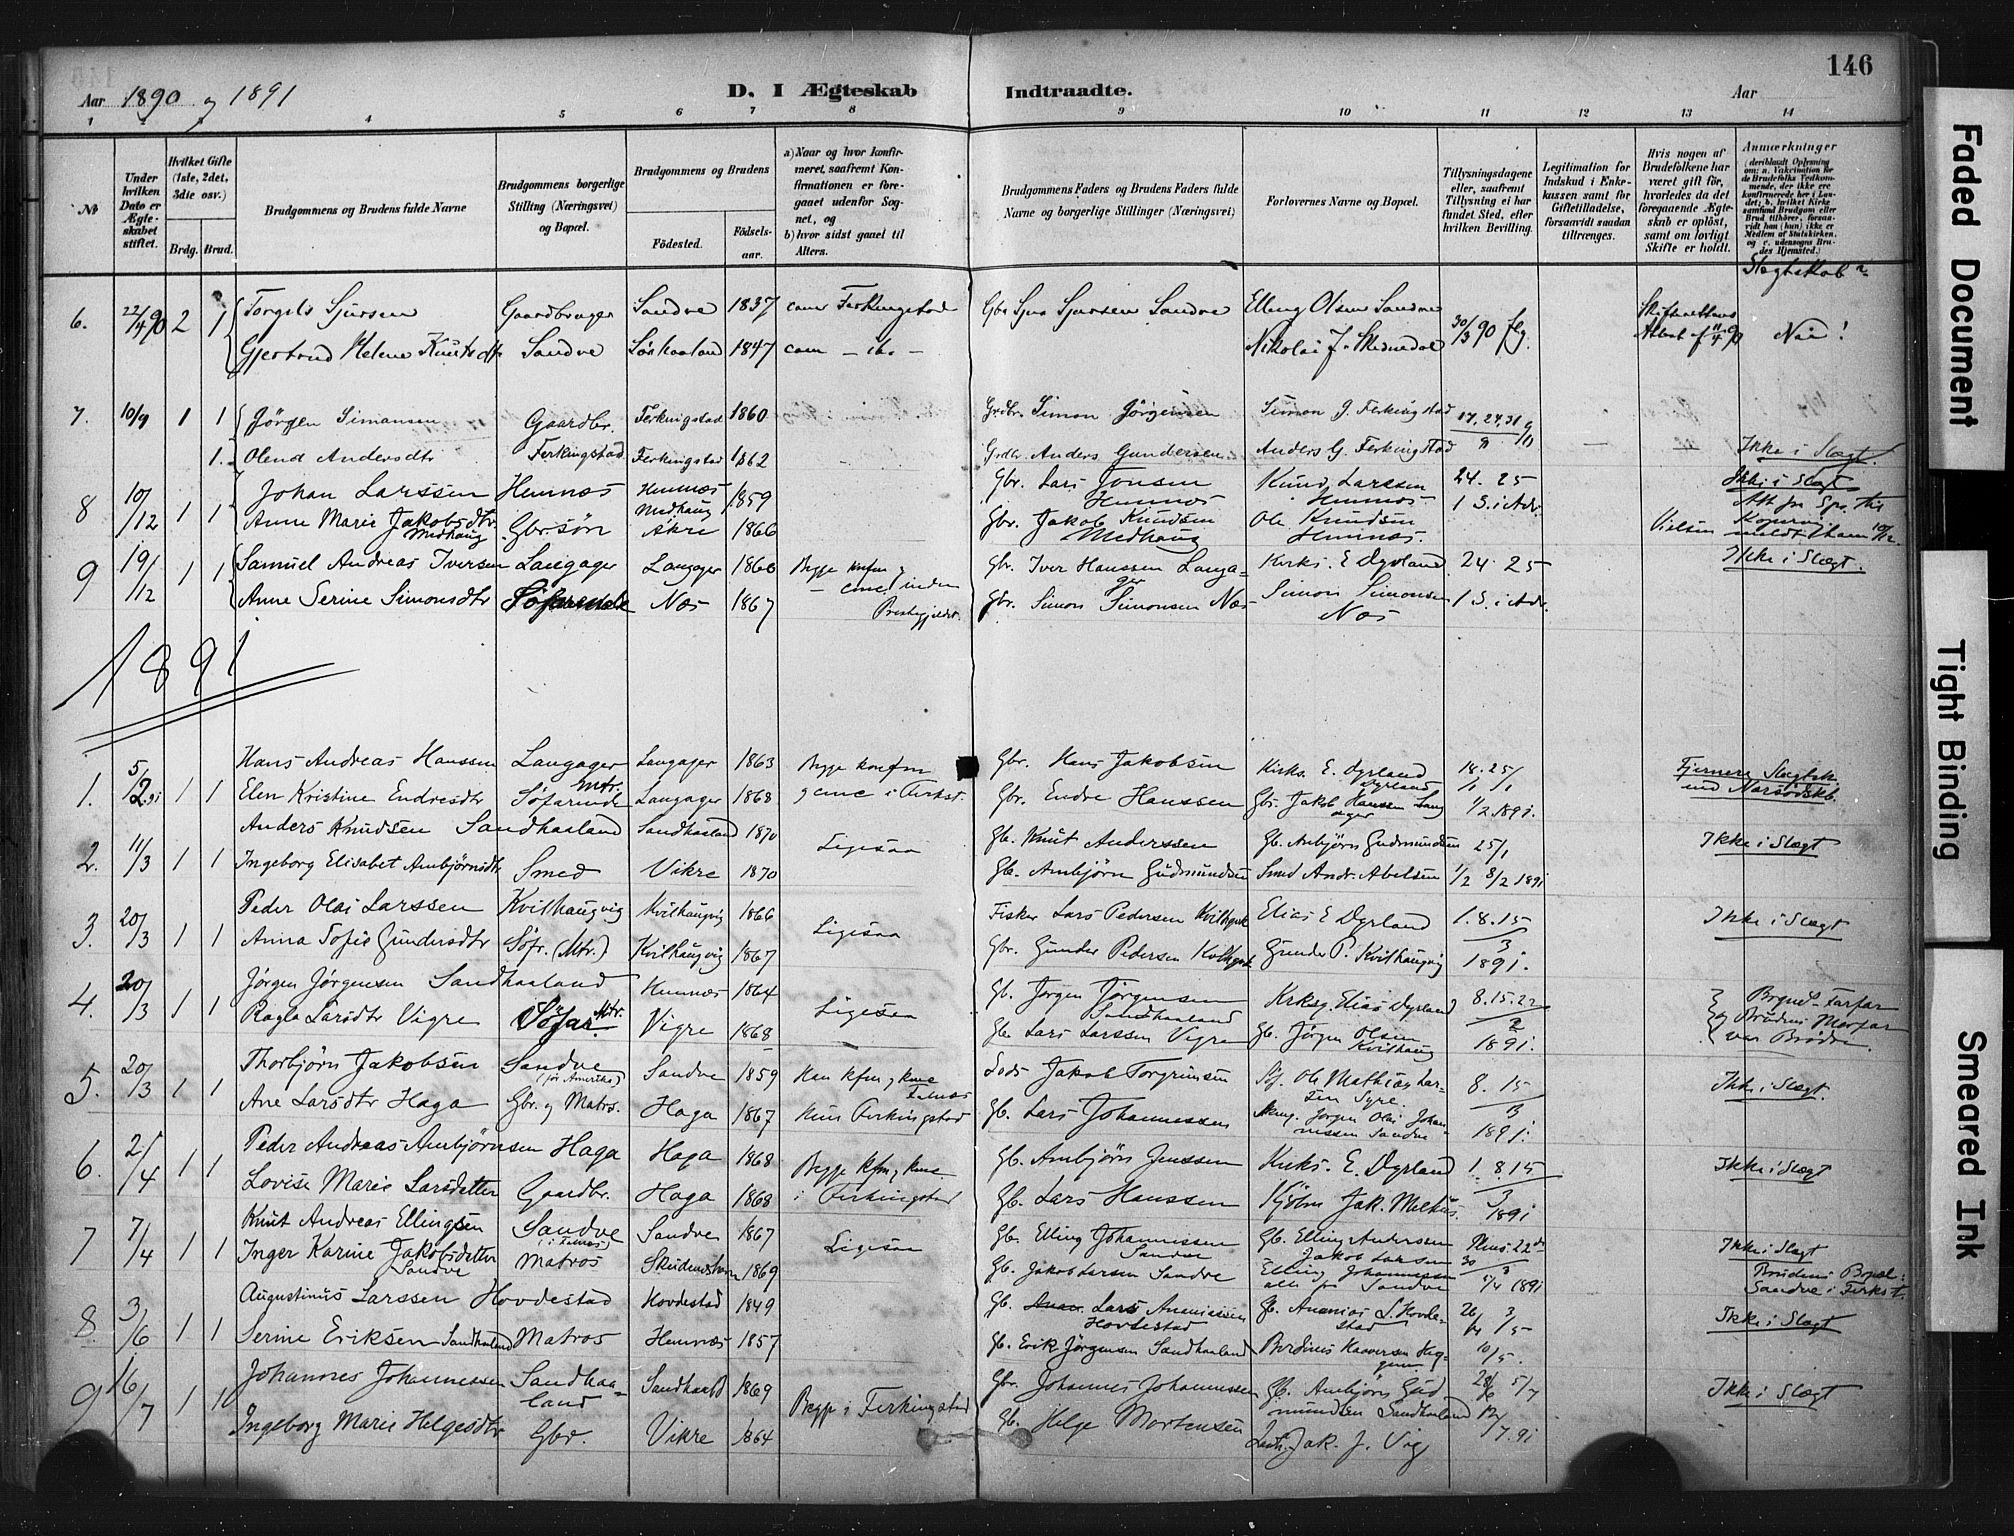 146
Aar 1890 og 1891
D. I Ægteskab Indtraadte.
Aar
1 2 3 4 5 6 7 8 9 10 11 12 13 14
№
Under hvilken Dato er Ægteskabet stiftet.
Hvilket Gifte (1ste, 2det, 3die osv.)
Brdg. Brud.
Brudgommens og Brudens fulde Navne
Brudgommens borgerlige Stilling (Næringsvei) og Bopæl.
Brudgommens og Brudens
Fødested. Fødselsaar.
a) Naar og hvor konfirmeret, saafremt Konfirmationen er foregaaet udenfor Sognet, og
b) hvor sidst gaaet til Alters.
Brudgommens Faders og Brudens Faders fulde Navne og borgerlige Stillinger (Næringsvei)
Forlovernes Navne og Bopæl.
Tillysningsdagene eller, saafremt Tillysning ei har fundet Sted, efter hvilken Bevilling.
Legitimation for Indskud i Enkekassen samt for Giftetilladelse, forsaavidt saadan tiltrænges.
Hvis nogen af Brudefolkene har været gift før, hvorledes da det foregaaende Ægteskab er opløst, samt om lovligt Skifte er holdt.
Anmærkninger (deriblandt Oplysning om: a. Vakcination for de Brudefolks Vedkommende, der ikke ere konfirmerede her i Landet; b. hvilket Kirkesamfund Brudgom eller Brud tilhører, forsaavidt han (hun) ikke er Medlem af Statskirken, og c. udensogns Brudes Hjemsted.)
Slegtskab
6. 22/4 90 2 1 Torgils Sjursen Gaardbruger Sandve 1837 Ferkingstad Gbr Sjur Sjursen Sandve Elling Olsen Sandve 30/3 90 flg.
Gjertrud Helene Knutsdtr Sandve Sørhaaland 1847 com - ib. - Nikolai J. Skeinedal Nei!
7. 10/9 1 1 Jørgen Simonsen Gaardbr. Ferkingstad 1860 Grdbr. Simon Jörgensen Simon J. Ferkingstad 17. 24. 31
1. Olend Andersdtr Ferkingstad Ferkingstad 1862 Grdbr. Anders Gundersen Anders G. Ferkingstad Ikke i Slægt.
8 10/12 1 1 Johan Larssen Hemnæs Hemnæs 1859 Gbr. Lars Jonsen Hemnæs Knud Larssen Hemnæs 24. 25 Ikke i Slægt
Anne Marie Jakobsdtr Medhaug Gbr. søn Medhaug Akre 1866 Gbr. Jakob Knudsen Medhaug Ole Knudsen Hemnæs. 1 S. i Adv.
9 19/12 1 1 Samuel Andreas Iversen Langager Langager 1860 Begge konfm og Gbr. Iver Hanssen Langager Kirks. E Dyrland 24. 25 Ikke i Slægt.
Anne Serine Simonsdtr Nos 1867 inden Prestegjeldet. Gbr. Simon Simonsen Nos Simon Simonsen Nos 1 S. i Adv.
1891
1. 5/2 91 1 1 Hans Andreas Hanssen Langager Langager 1863 Begge konfm Gbr. Hans Jakobsen Kirks. E. Dyrland 18. 25/1 Fjernere Slægtsk.
Elen Kristine Endresdtr Söfarende Mtr. Langager 1868 i Firkst. Gbr. Endre Hanssen Gbr. Jakob Hanssen Langager 1/2 1891. end Narsødskb.
2. 11/3 1 1 Anders Knudsen Sandhaaland Sandhaaland 1870 Ligesaa Gb. Knut Anderssen Gb. Ambjörn Gudmundsen 25/1 Ikke i Slægt
Ingeborg Elisabet Ambjørnsdtr Smed Vikre 1870 Gb. Ambjörn Gudmundsen Smed Andr. Abelsen 1/2 8/2 1891
3. 20/3 1 1 Peder Olai Larssen Kvilhaugvig Kvilhaugvig 1866 Ligesaa Fisker Lars Pedersen Elias E Dyrland 1. 8. 15 Ikke i Slægt
Anna Sofie Gundersdtr Söfr. (Mtr.) Kvilhaugvig 1867 Gbr. Gunder Pedersen Gunder P. Kvilhaugvig 3 1891.
4. 20/3 1 1 Jørgen Jørgensen Sandhaaland Hemnæs 1864 Ligesaa Gb. Jørgen Jörgensen Sandhaaland Elias Dyrland 8. 15. 22 Brgms Farfar
Ragla Larsdtr Vigre Söfar. Mtr. Vigre 1868 Gb. Lars Larssen Vigre Gb. Jørgen Olsen Kvilhaug 2 1891. og Brudens Morfar var Brødre.
5. 20/3 1 1 Thorbjørn Jakobsen Sandve (før Amerika) Sandve 1859 Han kfm Jakob Torgrimsen Ole Mathias Larsen Syre. 8. 15 Ikke i Slægt.
Ane Larsdtr Haga Gbr. og Matros. Haga 1867 Hun Firkingstad Gb. Lars Johannessen Jørgen Olai Johannessen Sandve 3 1891.
6. 2/4 1 1 Peder Andreas Ambjörnsen Haga Haga 1868 Begge kfm Gb. Ambjörn Jenssen Kirks. E. Dyrland 1. 8. 15 Ikke i Slægt
Lovise Marie Larsdatter Gaardbr. Haga 1868 i Firkingstad Gb. Lars Hanssen Jak. Melkus. 3/1891
7 7/4 1 1 Knut Andreas Ellingsen Sandve Sandve 1867 Ligesaa Gb. Elling Johannessen Sandve Gb. Elling Andersen 22de Ikke i Slægt
Inger Karine Jakobsdatter Sandve Matros Skudenshavn 1869 Gb. Jakob Larsen Sandve Jakob Larsen Elling Johannessen alle paa Sandve 5/4 1891 Brudens Bopæl: Sandve i Firkst.
8. 3/6 1 1 Augustinus Larssen Hovdestad Hovdestad 1849 Gb. Lars Ananiassen Hovdestad Gb. Ananias L. Hovdestad 26/4 3/5 Ikke i Slægt
Serine Eriksen Sandhaaland Matros Hemnæs 1857 Gb. Erik Jørgensen Sandhaaland Berdinus Kaaversen 10/5.
9 16/7 1 1 Johannes Johannessen Sandhaaland Sandhaald 1869 Begge i Ferkingstad Gbr. Johannes Johannessen Gb. Ambjörn Gudmundsen Sandhaaland 28/6 5/7 Ikke i Slægt
Ingeborg Marie Helgesdtr Gbr. Vikre 1864 Gb. Helge Mortensen Jak. J. Vig 12/7. 91
Faded Document
Tight Binding
Smeared Ink